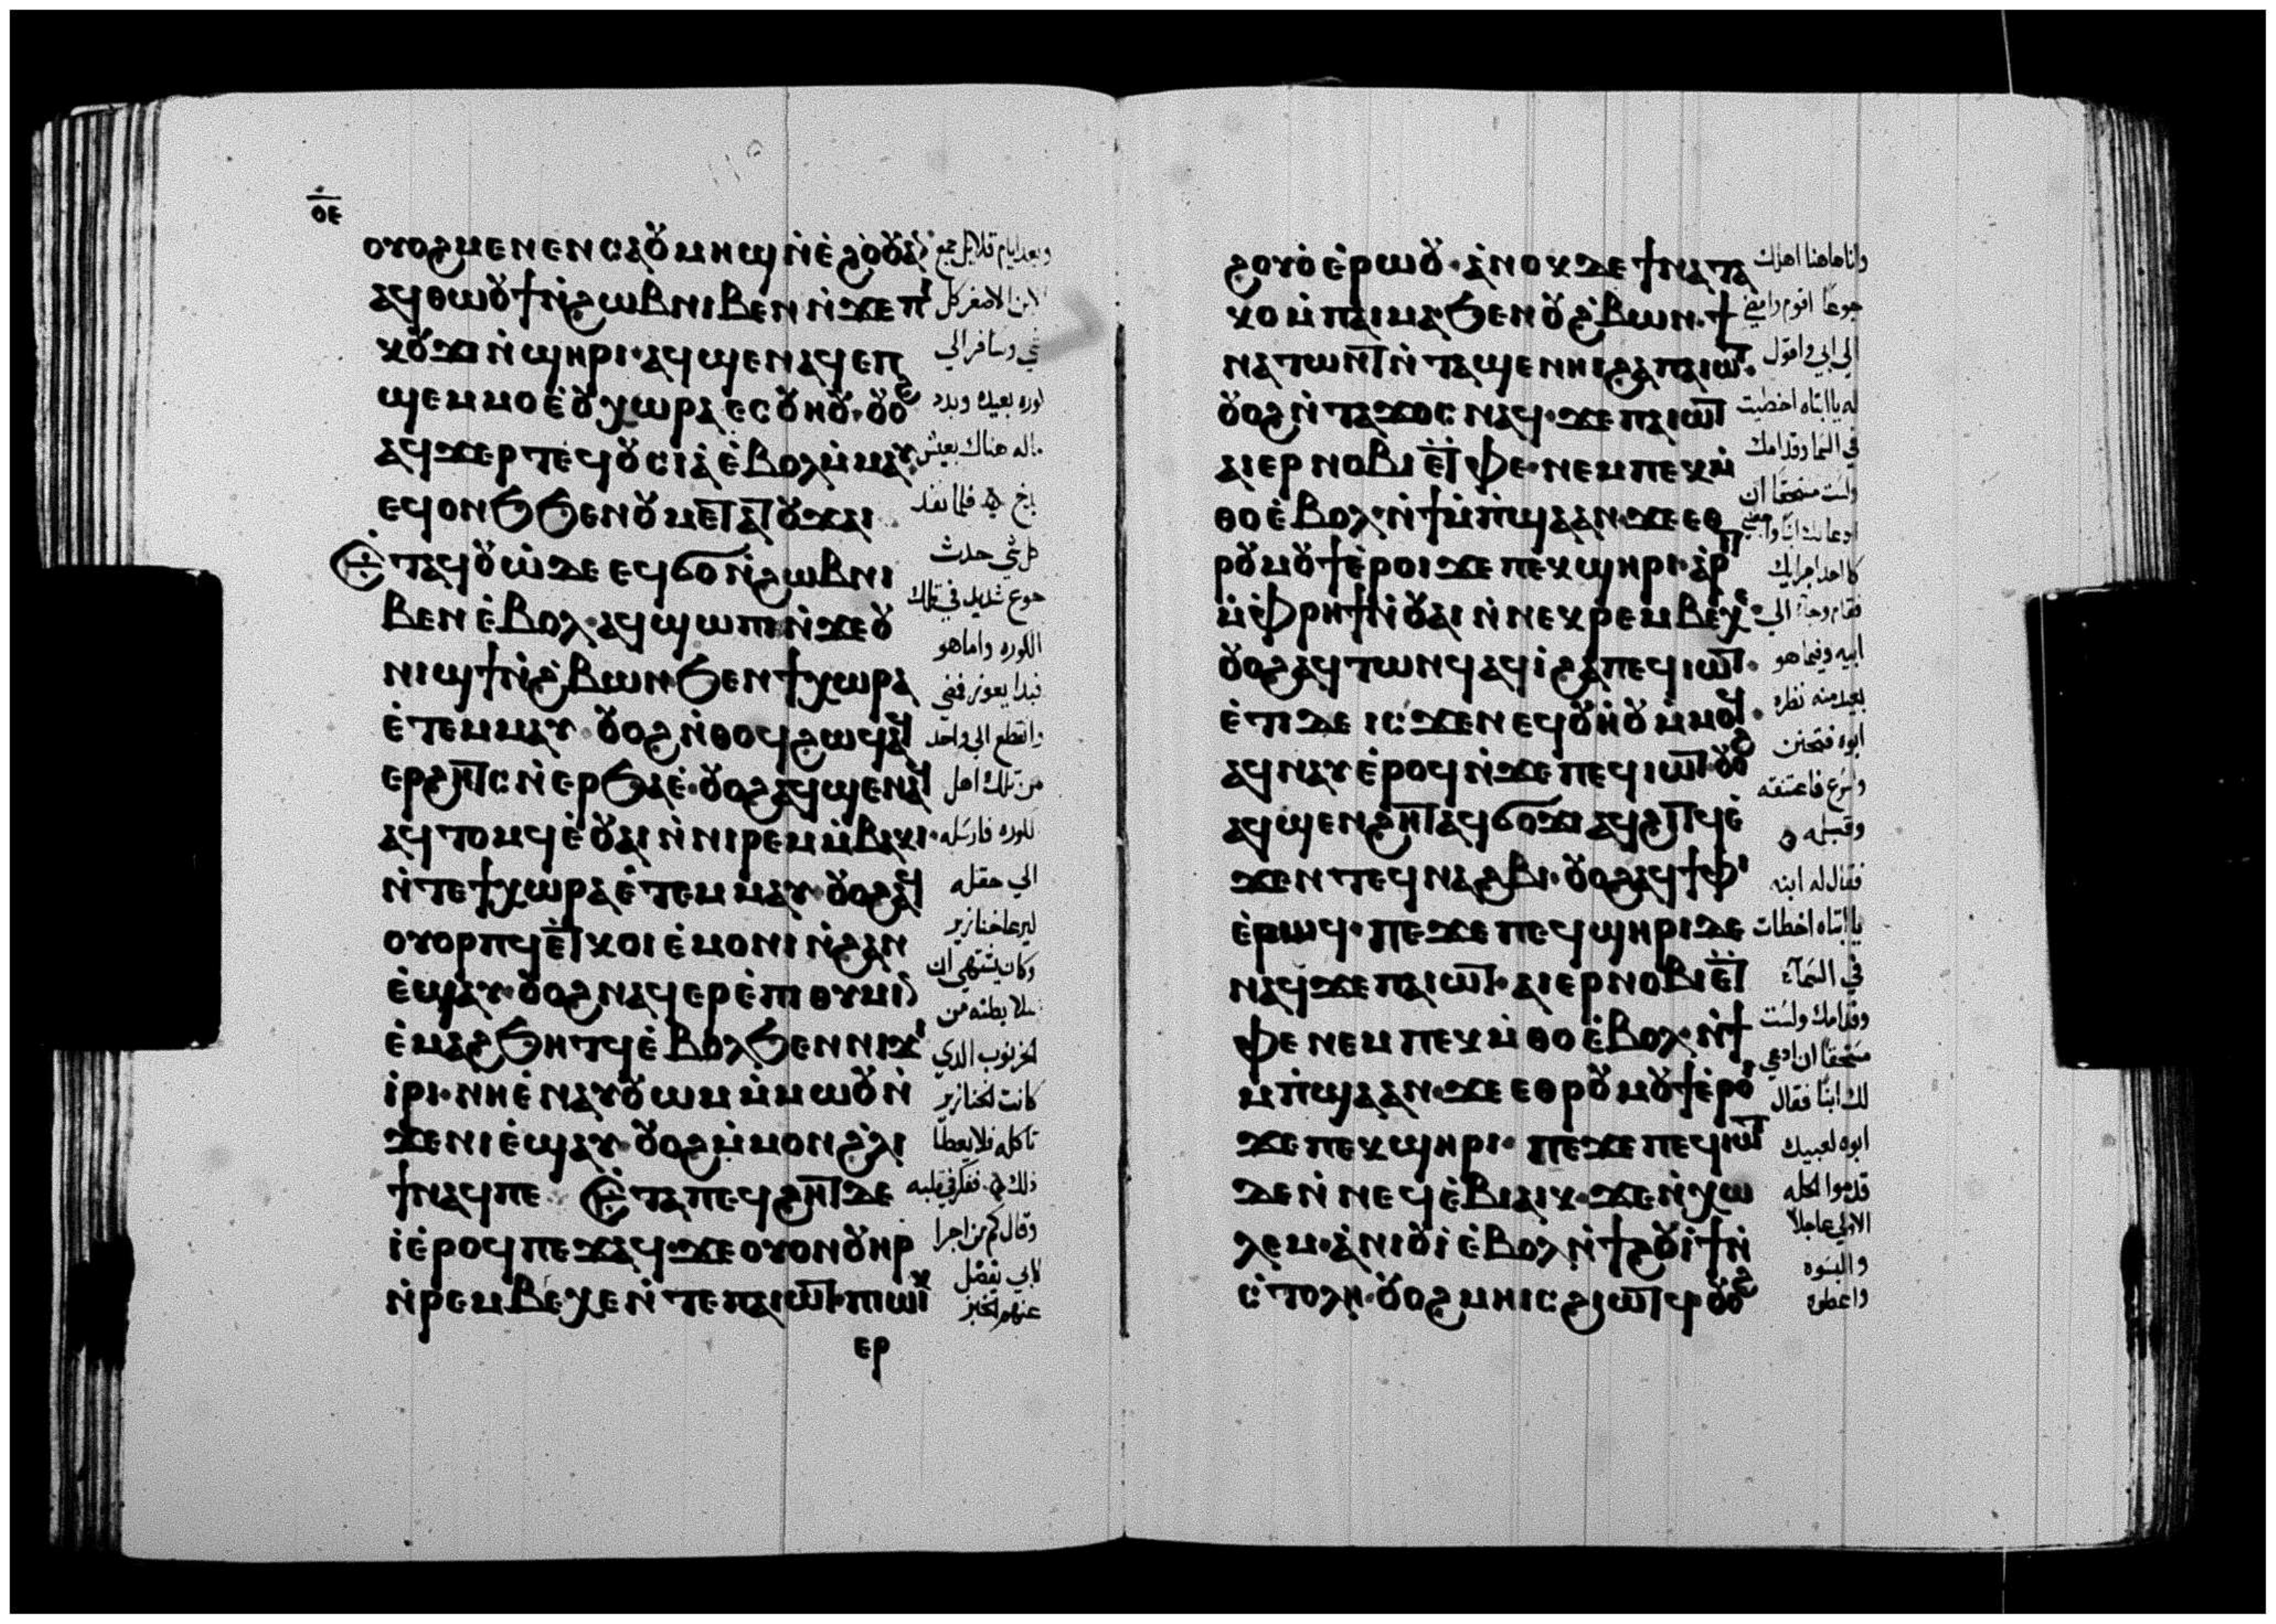 ⲟ̅ⲉ̅
ⲟⲩⲟϩ ⲙⲉⲛⲉⲛⲥⲁ ⲟⲩⲙⲏϣ ⲛ̀ⲉ̀ϩⲟ̀ⲟⲩ
ⲁϥⲑⲱⲟⲩϯ ⲛ̀ϩⲱⲃ ⲛⲓⲃⲉⲛ ⲛ̀ϫⲉ ⲡⲓ
ⲕⲟⲩϫⲓ ⲛ̀ϣⲏⲣⲓ· ⲁϥϣⲉⲛⲁϥ ⲉⲡ
ϣⲉⲙⲙⲟ ⲉ̀ⲟⲩⲭⲱⲣⲁ ⲉⲥⲟⲩⲏⲟⲩ· ⲟⲩⲟϩ
ⲁϥϫⲉⲣ ⲧⲉϥⲟⲩⲥⲓⲁ̀ ⲉ̀ⲃⲟⲗ ⲙ̀ⲙⲁⲩ·
ⲉϥⲟⲛϧ ϧⲉⲛ ⲟⲩⲙⲉⲧⲁⲧⲟⲩϫⲁⲓ
Ⲉⲧⲁϥⲟⲩⲱ̀ ⲇⲉ ⲉϥϭⲟ ⲛ̀ϩⲱⲃ ⲛⲓ
ⲃⲉⲛ ⲉ̀ⲃⲟⲗ· ⲁϥϣⲱⲡⲓ ⲛ̀ϫⲉ ⲟⲩ
ⲛⲓϣϯ ⲛ̀ϩ̀ⲃⲱⲛ ϧⲉⲛ ϯⲭⲱⲣⲁ
ⲉ̀ⲧⲉⲙⲙⲁⲩ· ⲟⲩⲟϩ ⲛ̀ⲑⲟϥ ϩⲱϥ ⲁϥ
ⲉⲣϩⲏⲧⲥ ⲛ̀ⲉⲣϧⲁⲉ̀· ⲟⲩⲟϩ ⲁϥϣⲉⲛⲁϥ
ⲁϥⲧⲟⲙϥ ⲉ̀ⲟⲩⲁⲓ ⲛ̀ⲛⲓⲣⲉⲙⲙ̀ⲃⲁⲕⲓ·
ⲛ̀ⲧⲉ ϯⲭⲱⲣⲁ ⲉ̀ⲧⲉⲙⲙ̀ⲁⲩ· ⲟⲩⲟϩ ⲁϥ
ⲟⲩⲟⲣⲡϥ ⲉ̀ⲧⲕⲟⲓ ⲉ̀ⲙⲟⲛⲓ ⲛ̀ϩⲁⲛ
ⲉ̀ϣⲁⲩ· ⲟⲩⲟϩ ⲛⲁϥⲉⲣⲉ̀ⲡⲓⲑⲩⲙⲓⲛ
ⲉ̀ⲙⲁϩ ϧⲏⲧϥ ⲉ̀ⲃⲟⲗ ϧⲉⲛ ⲛⲓϫⲓ
ⲓ̀ⲣⲓ· ⲛⲏⲉ̀ⲛⲁⲩⲟⲩⲱⲙ ⲙ̀ⲙⲱⲟⲩ ⲛ̀
ϫⲉ ⲛⲓⲉ̀ϣⲁⲩ· ⲟⲩⲟϩ ⲙ̀ⲙⲟⲛ ϩ̀ⲗⲓ
ϯ ⲛⲁϥ ⲡⲉ· Ⲉⲧⲁ ⲡⲉϥϩⲏⲧ ⲇⲉ
ⲓ̀ ⲉ̀ⲣⲟϥ ⲡⲉϫⲁϥ· ϫⲉ ⲟⲩⲟⲛ ⲟⲩⲏⲣ
ⲛ̀ⲣⲉⲙⲃⲉⲭⲉ ⲛ̀ⲧⲉ ⲡⲁⲓⲱⲧ· ⲡⲱⲓⲕ
ⲉⲣ
وبعد ايام قلايل جمع
الابن الاصغر كل
شي وسافر الى
كوره بعيده وبدد
ماله هناك بعيش
بذخ فلما نفد
كل شي حدث
جوع شديد في تلك
الكوره واما هو
فبدا يعوز فمضى
وانقطع الى واحد
من تلك اهل
الكوره فارسله
الى حقله
ليرعا خنازير
وكان يشتهي ان
يملا بطنه من
الخرنوب الذي
كانت الخنازير
تاكله فلا يعطا
ذلك ففكر في قلبه
وقال كم من اجرا
لابي يفضل
عنهم الخبز
ϩⲟⲩⲟ̀ ⲉ̀ⲣⲱⲟⲩ· ⲁ̀ⲛⲟⲕ ⲇⲉ ϯⲛⲁⲧⲁ
ⲕⲟ ⲙ̀ⲡⲁⲓⲙⲁ ϧⲉⲛ ⲟⲩϩ̀ⲃⲱⲛ· ϯ
ⲛⲁⲧⲱⲛⲧ ⲛ̀ⲧⲁϣⲉⲛⲏⲓ ϩⲁ ⲡⲁⲓⲱⲧ·
ⲟⲩⲟϩ ⲛ̀ⲧⲁϫⲟⲥ ⲛⲁϥ· ϫⲉ ⲡⲁⲓⲱⲧ
ⲁⲓⲉⲣⲛⲟⲃⲓ ⲉ̀ⲧⲫⲉ· ⲛⲉⲙ ⲡⲉⲕⲙ̀
ⲑⲟ ⲉ̀ⲃⲟⲗ· ⲛ̀ϯⲙ̀ⲡ̀ϣⲁ ⲁⲛ· ϫⲉ ⲉⲑ
ⲣⲟⲩⲙⲟⲩϯ ⲉ̀ⲣⲟⲓ ϫⲉ ⲡⲉⲕϣⲏⲣⲓ· ⲁⲣⲓⲧ
ⲙ̀ⲫ̀ⲣⲏϯ ⲛ̀ⲟⲩⲁⲓ ⲛ̀ⲛⲉⲕⲣⲉⲙⲃⲉⲭⲉ·
ⲟⲩⲟϩ ⲁϥⲧⲱⲛϥ ⲁϥⲓ̀ ϩⲁ ⲡⲉϥⲓⲱⲧ·
ⲉ̀ⲧⲓ ⲇⲉ ⲓⲥϫⲉⲛ ⲉϥⲟⲩⲏ̀ⲟⲩ ⲙ̀ⲙⲟϥ·
ⲁϥⲛⲁⲩ ⲉ̀ⲣⲟϥ ⲛ̀ϫⲉ ⲡⲉϥⲓⲱⲧ· ⲟⲩⲟϩ
ⲁϥϣⲉⲛϩⲏⲧ ⲁϥϭⲟϫⲓ ⲁϥϩⲓⲧϥ ⲉ̀
ϫⲉⲛ ⲧⲉϥⲛⲁϩⲃⲓ· ⲟⲩⲟϩ ⲁϥϯⲫⲓ
ⲉ̀ⲣⲱϥ· ⲡⲉϫⲉ ⲡⲉϥϣⲏⲣⲓ ⲇⲉ
ⲛⲁϥ ϫⲉ ⲡⲁⲓⲱⲧ· ⲁⲓⲉⲣⲛⲟⲃⲓ ⲉ̀ⲧ
ⲫⲉ ⲛⲉⲙ ⲡⲉⲕⲙ̀ⲑⲟ ⲉ̀ⲃⲟⲗ· ⲛ̀ϯ
ⲙ̀ⲡ̀ϣⲁ ⲁⲛ· ϫⲉ ⲉⲑⲣⲟⲩⲙⲟⲩϯ ⲉ̀ⲣⲟⲓ
ϫⲉ ⲡⲉⲕϣⲏⲣⲓ· ⲡⲉϫⲉ ⲡⲉϥⲓⲱⲧ
ⲇⲉ ⲛ̀ⲛⲉϥⲉ̀ⲃⲓⲁⲓⲕ· ϫⲉ ⲛ̀ⲭⲱ
ⲗⲉⲙ· ⲁ̀ⲛⲓⲟⲩⲓ̀ ⲉ̀ⲃⲟⲗ ⲛ̀ϯϩⲟⲩⲓ̀ϯ ⲛ̀
ⲥ̀ⲧⲟⲗⲏ· ⲟⲩⲟϩ ⲙⲏⲓⲥ ϩⲓⲱⲧϥ· ⲟⲩⲟϩ
وانا هاهنا اهلك
جوعا اقوم وامضي
الى ابي واقول
له يا ابتاه اخطيت
في السما وقدامك
ولست مستحقا ان
ادعا لك ابنا
كاحد اجرايك
فقام وجاء الى
ابيه وفيما هو
بعيد منه نظره
ابوه فتحنن
واسرع فاعتنقه
وقبله
فقال له ابنه
يا ابتاه اخطات
في السمآء
وقدامك ولست
مستحقا ان ادعى
لك ابنا فقال
ابوه لعبيده
قدموا الحله
الاولى عاجلا
والبسوه
واعطوه